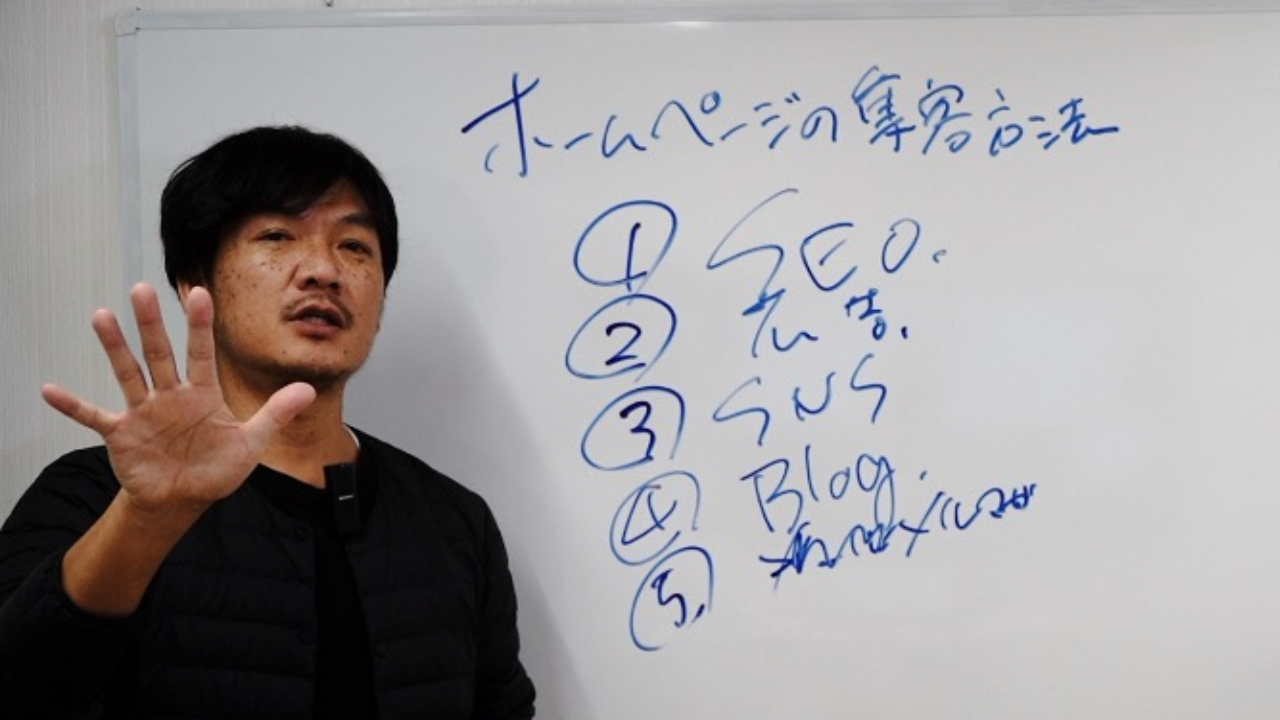 ホームページの集客方法
① SEO.
② 広告.
③ SNS
④ Blog.
⑤. メルマガ